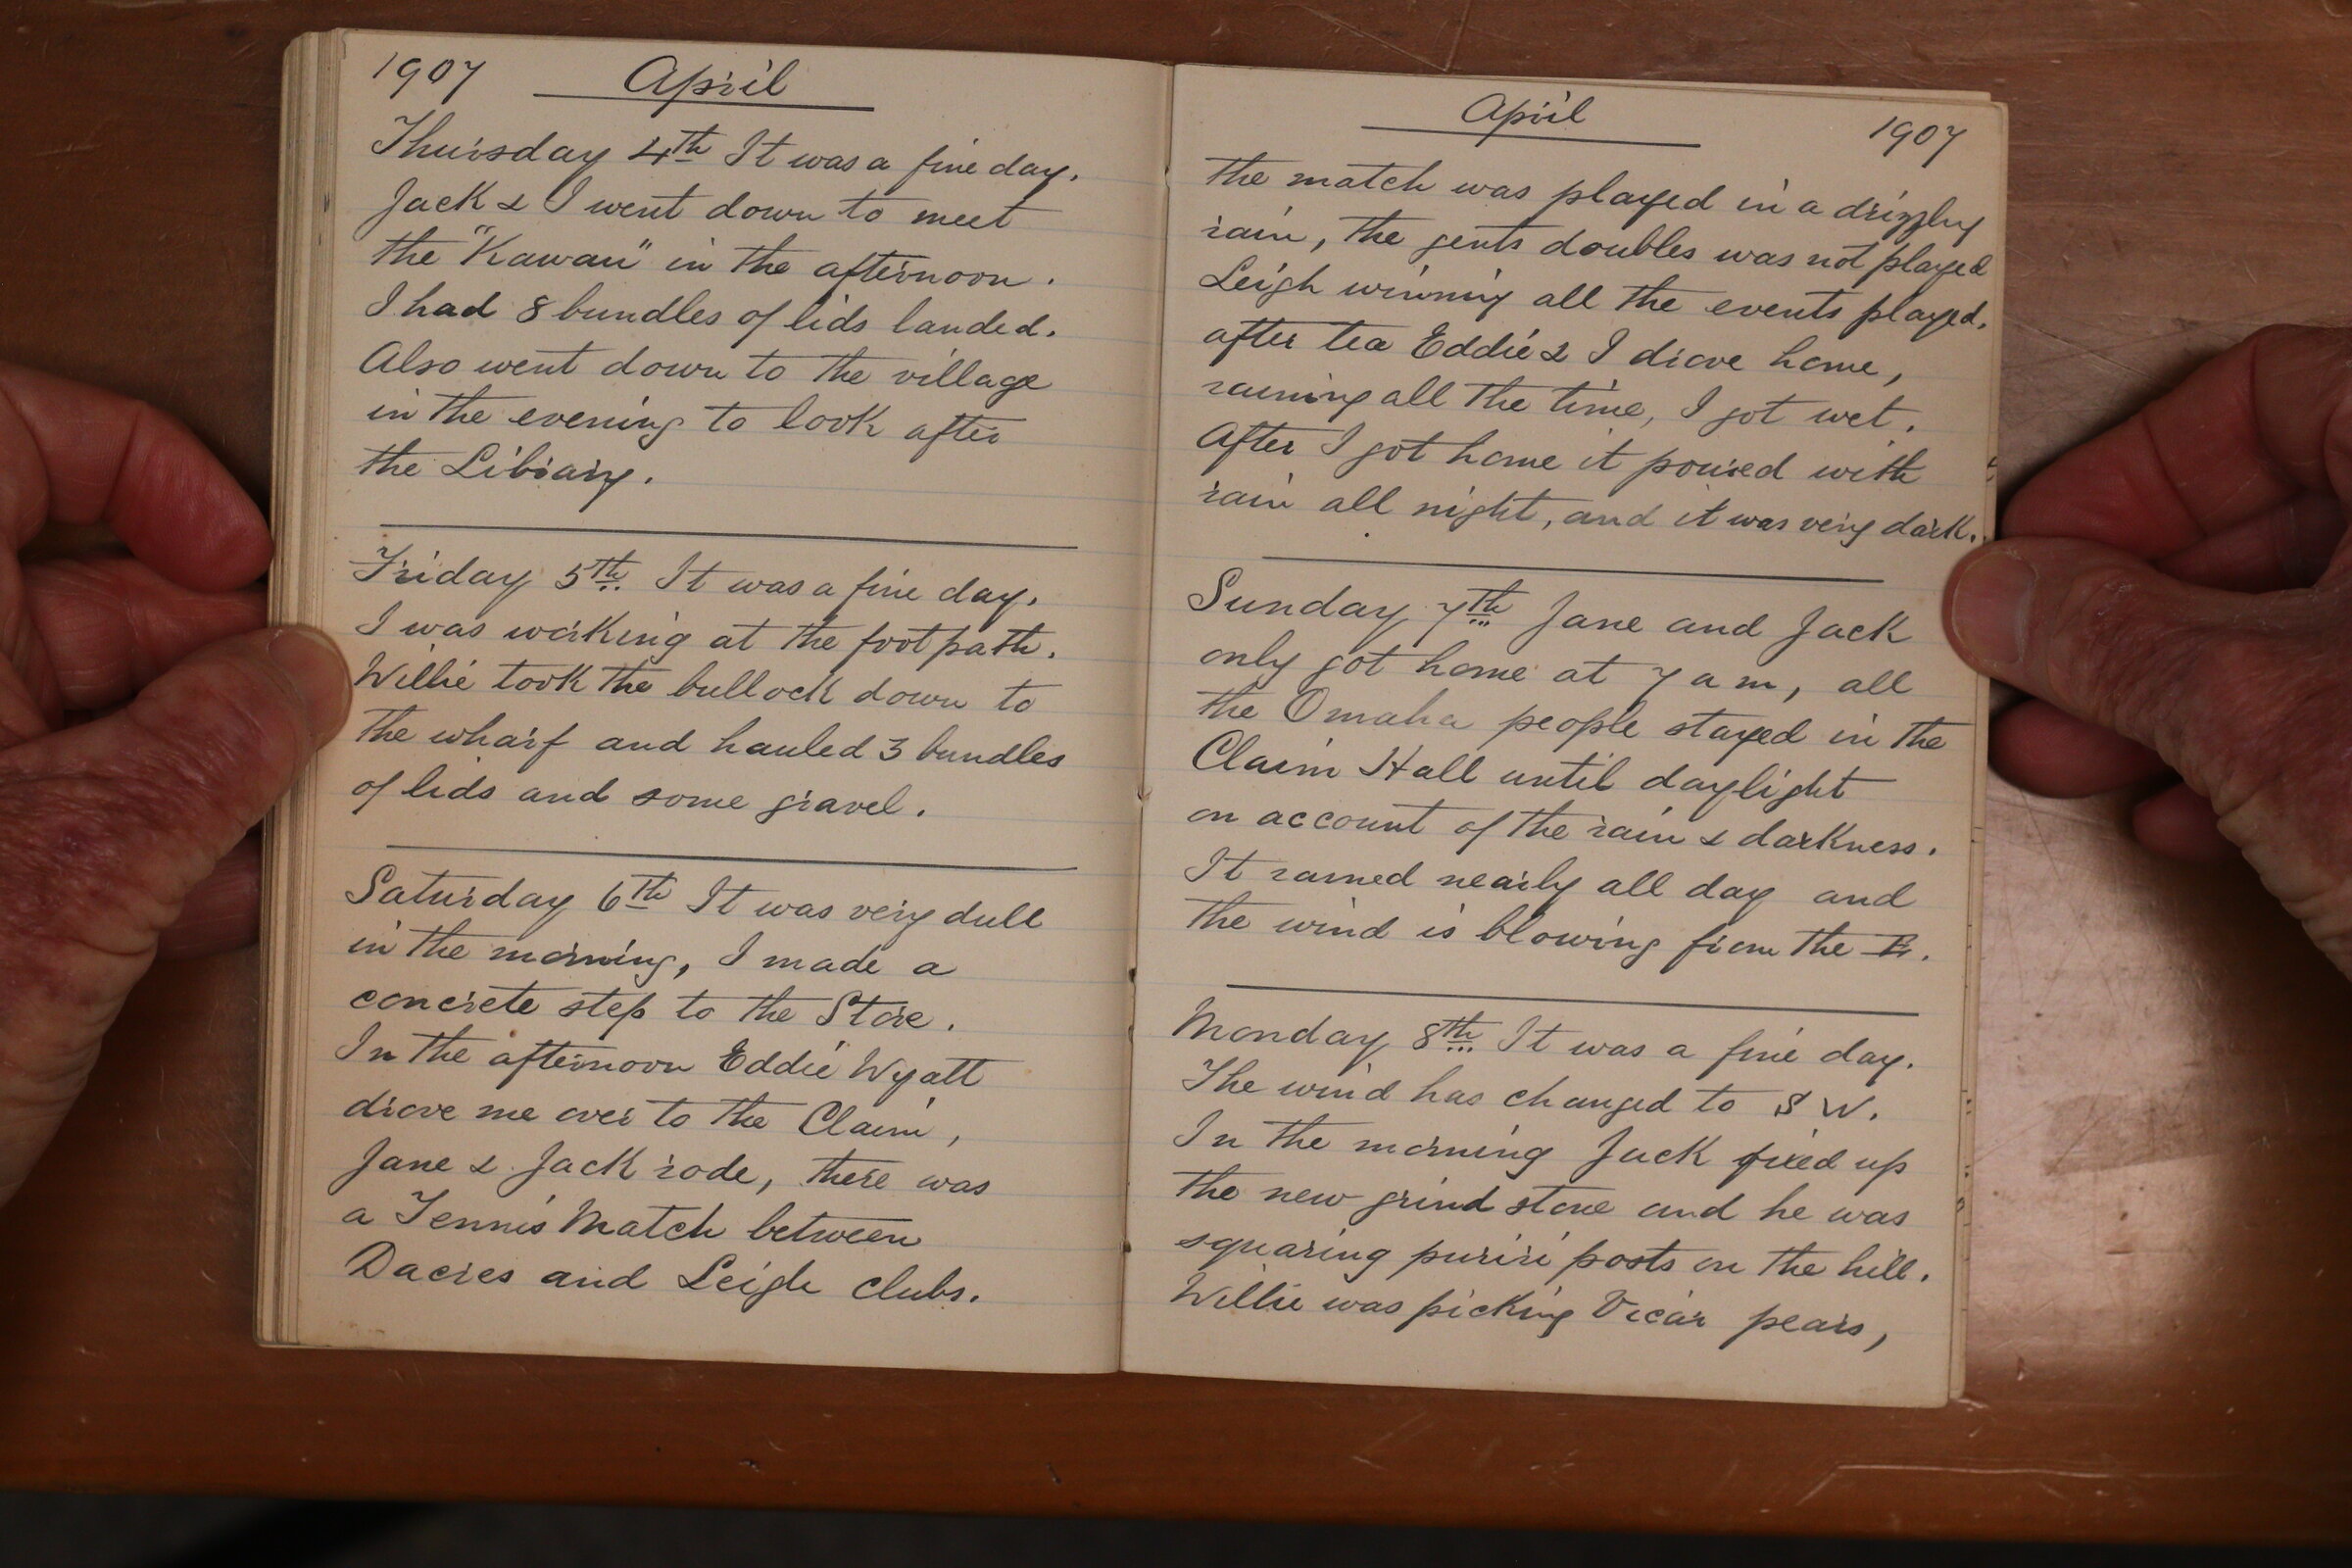 1907 April
Thursday 4th It was a fine day.
Jack & I went down to meet
the "Kawau" in the afternoon.
I had 8 bundles of lids landed.
Also went down to the village
in the evening to look after
the Library.
Friday 5th. It was a fine day.
I was working at the foot path.
Willie took the bullock down to
the wharf and hauled 3 bundles
of lids and some gravel.
Saturday 6th It was very dull
in the morning, I made a
concrete step to the Store.
In the afternoon Eddie Wyatt
drove me over to the Claim,
Jane & Jack rode, there was
a Tennis Match between
Dacres and Leigh clubs.
April 1907
the match was played in a drizzly
rain, the gents doubles was not played
Leigh winning all the events played.
after tea Eddie & I drove home,
raining all the time, I got wet.
After I got home it poured with
rain all night, and it was very dark.
Sunday 7th Jane and Jack
only got home at 7 a m, all
the Omaha people stayed in the
Claim Hall until daylight
on account of the rain & darkness.
It rained nearly all day and
the wind is blowing from the E.
Monday 8th It was a fine day.
The wind has changed to S W.
In the morning Jack fixed up
the new grind stone and he was
squaring puriri posts on the hill.
Willie was picking Vicar pears,